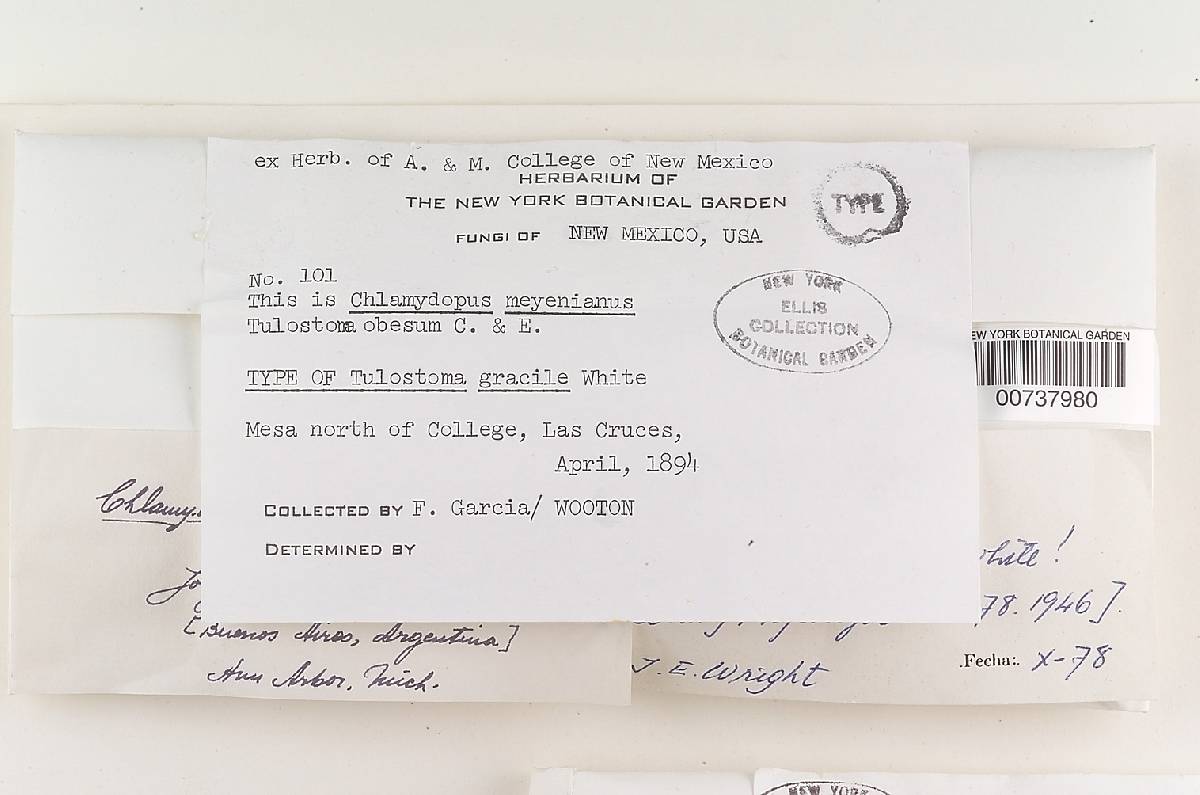 ex Herb. of A. & M. College of New Mexico
HERBARIUM OF
THE NEW YORK BOTANICAL GARDEN
TYPE
FUNGI OF NEW MEXICO, USA
No. 101
This is Chlamydopus meyenianus
Tulostoma obesum C. & E.
NEW YORK
ELLIS
COLLECTION
BOTANICAL GARDEN
EW YORK BOTANICAL GARDEN
00737980
TYPE OF Tulostoma gracile White
Mesa north of College, Las Cruces,
April, 1894
COLLECTED BY F. Garcia/ WOOTON
DETERMINED BY
Chlamy
hite!
78. 1946].
[Buenos Aires, Argentina]
Ann Arbor, Mich.
J. E. Wright
.Fecha:. X-78
NEW YORK